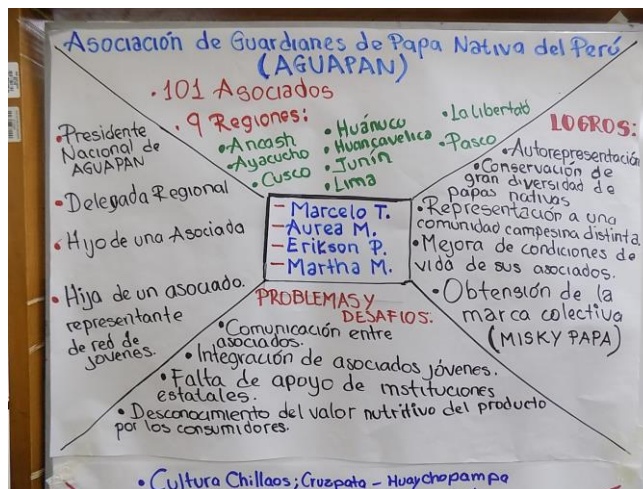 Asociación de Guardianes de Papa Nativa del Perú
(AGUAPAN)
• 101 Asociados
• 9 Regiones:
• Ancash
• Ayacucho
• Cusco
• Huánuco
• Huancavelica
• Junín
• Lima
• La libertad
• Pasco
• Presidente
Nacional de
AGUAPAN
• Delegada Regional
• Hijo de una Asociada
• Hija de un asociado.
representante
de red de
jóvenes.
- Marcelo T.
- Aurea M.
- Erikson P.
- Martha M.
LOGROS:
• Autorepresentación
• Conservación de
gran diversidad de
papas nativas
• Representación a una
comunidad campesina distinta
• Mejora de condiciones de
vida de sus asociados.
• Obtensión de la
marca colectiva
(MISKY PAPA)
PROBLEMAS Y
DESAFIOS:
• Comunicación entre
asociados.
• Integración de asociados jóvenes.
• Falta de apoyo de instituciones
estatales.
• Desconocimiento del valor nutritivo del producto
por los consumidores.
• Cultura Chillaos; Cruzpata - Huaychopampa